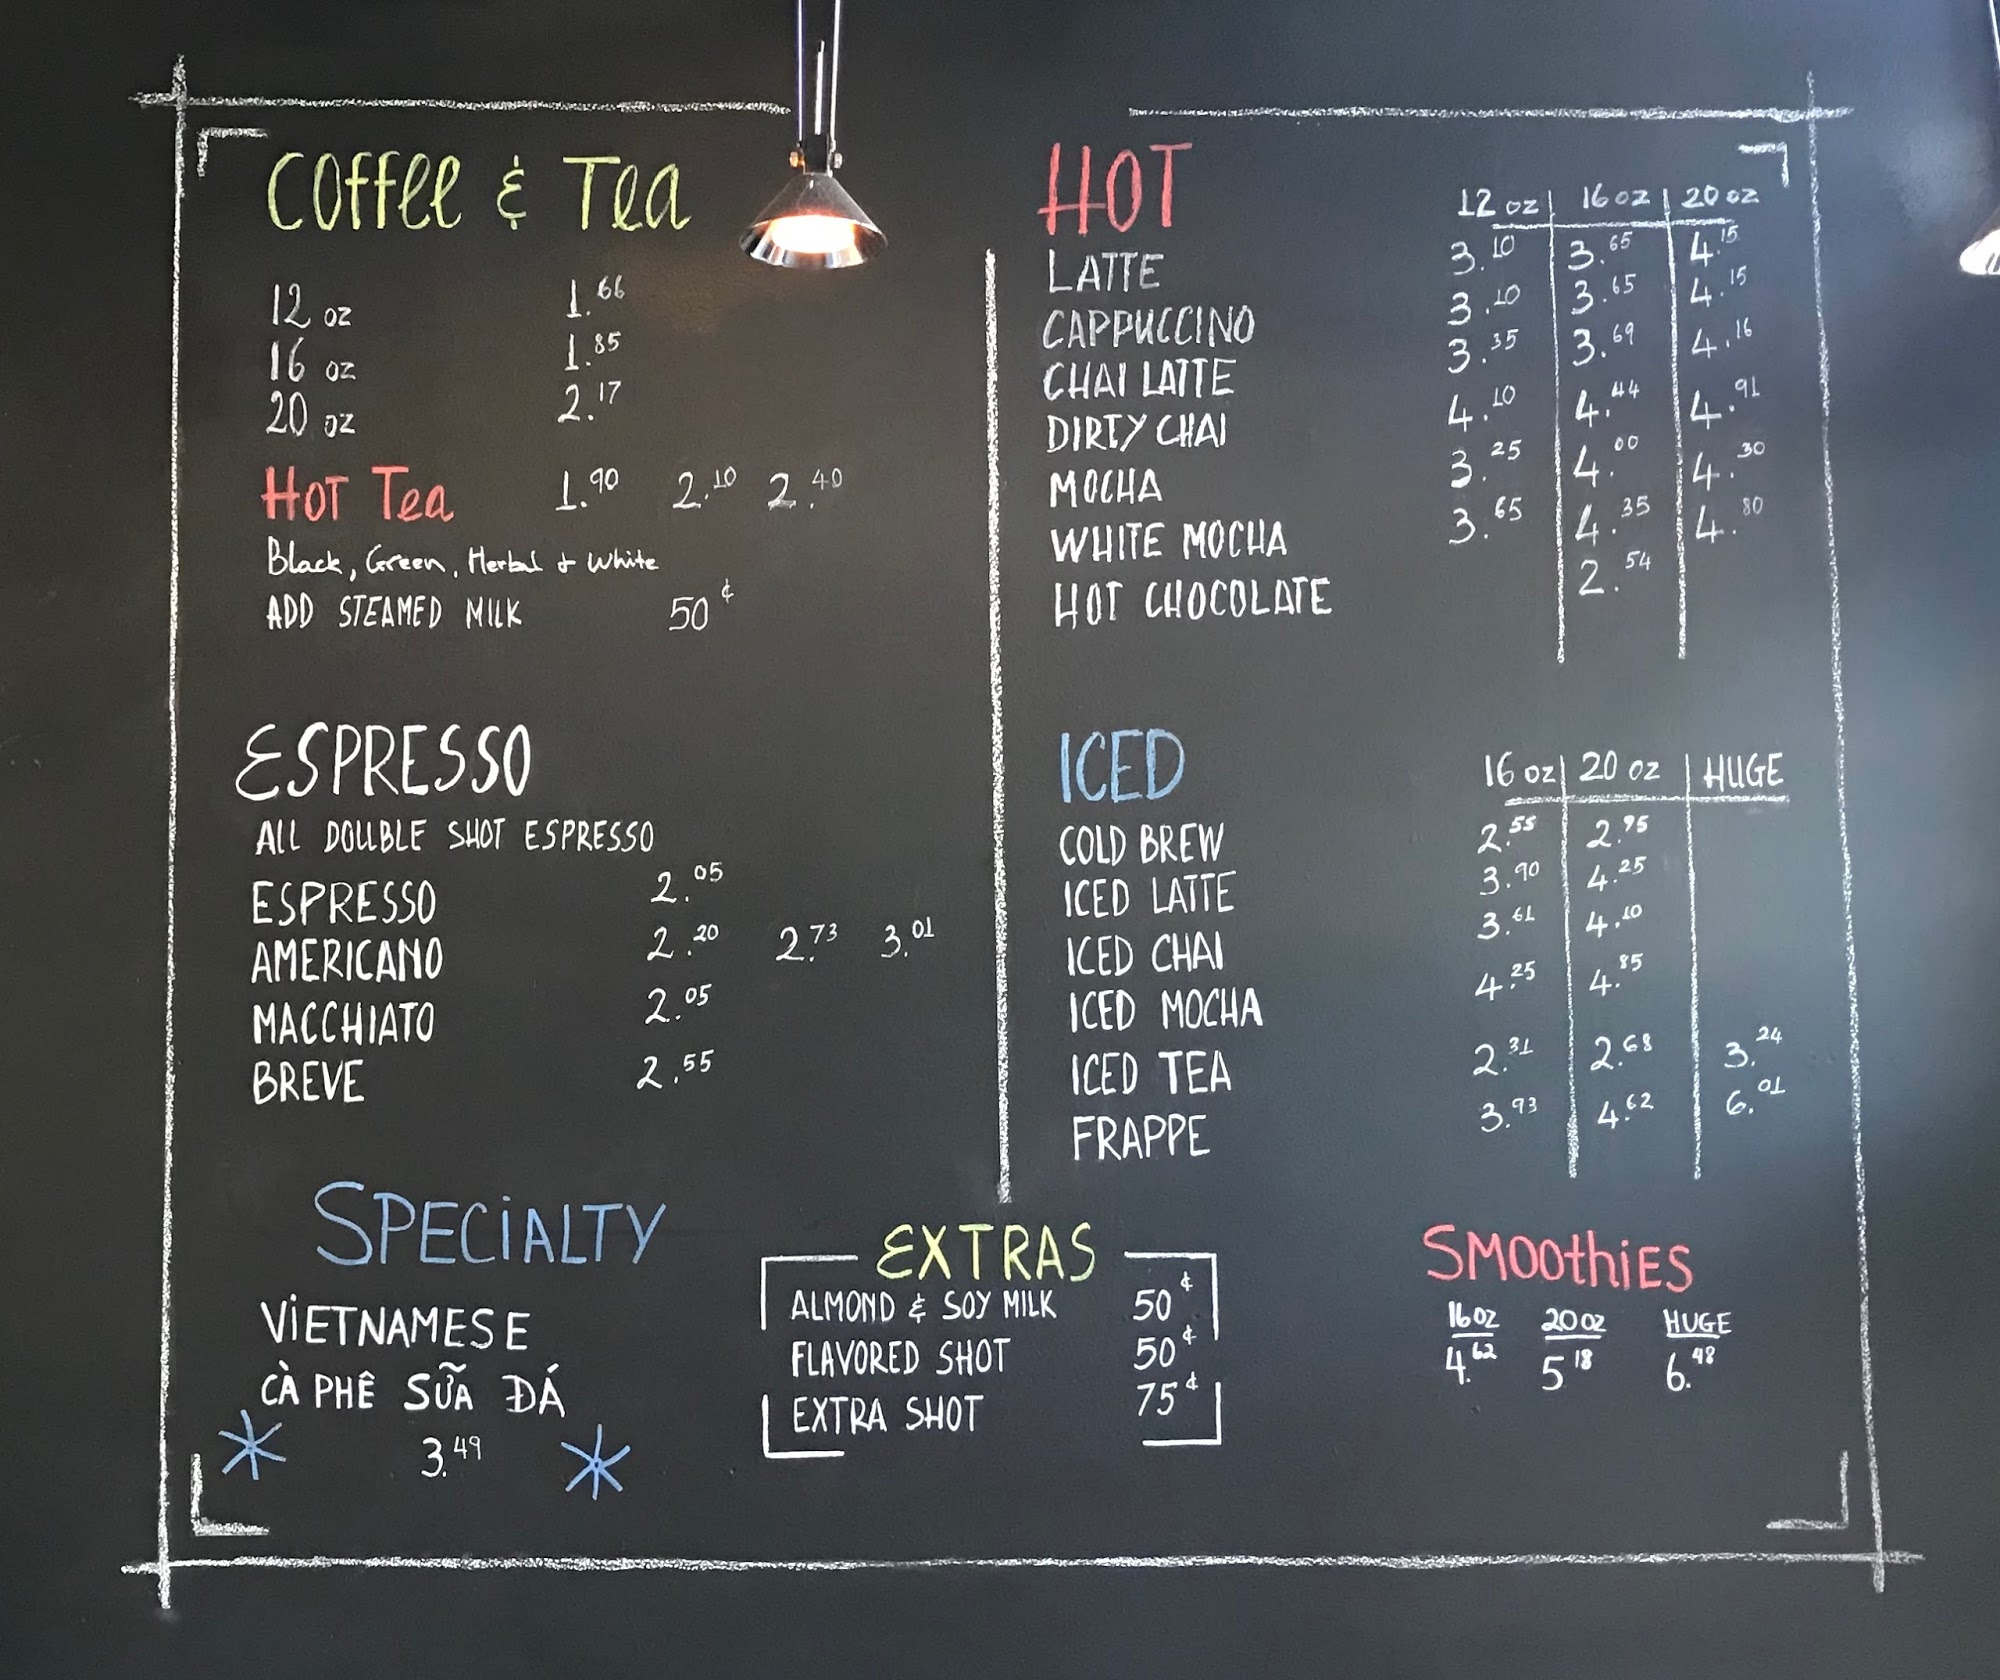 Coffee & Tea
12 oz 1.66
16 oz 1.85
20 oz 2.17
Hot Tea 1.90 2.10 2.40
Black, Green, Herbal + White
ADD STEAMED MILK 50¢
ESPRESSO
ALL DOUBLE SHOT ESPRESSO
ESPRESSO 2.05
AMERICANO 2.20 2.73 3.01
MACCHIATO 2.05
BREVE 2.55
HOT 12 oz 16 oz 20 oz
LATTE 3.10 3.65 4.15
CAPPUCCINO 3.10 3.65 4.15
CHAI LATTE 3.35 3.69 4.16
DIRTY CHAI 4.10 4.44 4.91
MOCHA 3.25 4.00 4.30
WHITE MOCHA 3.65 4.35 4.80
HOT CHOCOLATE 2.54
ICED 16 oz 20 oz HUGE
COLD BREW 2.55 2.95
ICED LATTE 3.90 4.25
ICED CHAI 3.61 4.10
ICED MOCHA 4.25 4.85
ICED TEA 2.31 2.68 3.24
FRAPPE 3.93 4.62 6.01
SPECiALTY
ViETNAMESE
CÀ PHÊ SỮA ĐÁ
3.49
EXTRAS
ALMOND & SOY MILK 50¢
FLAVORED SHOT 50¢
EXTRA SHOT 75¢
SMOOthiES
16 OZ 20 OZ HUGE
4.62 5.18 6.48